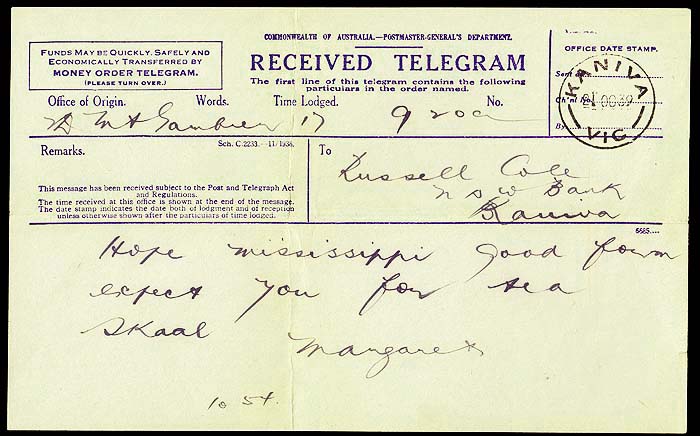 COMMONWEALTH OF AUSTRALIA.—POSTMASTER-GENERAL'S DEPARTMENT.
FUNDS MAY BE QUICKLY, SAFELY AND
ECONOMICALLY TRANSFERRED BY
MONEY ORDER TELEGRAM.
(PLEASE TURN OVER.)
RECEIVED TELEGRAM
The first line of this telegram contains the following
particulars in the order named.
OFFICE DATE STAMP.
Office of Origin. Words. Time Lodged. No.
Mt Gambier 17 9 20a
KANIVA
OC 39
VIC
Sch. C.2233.—11/1938.
Remarks.
This message has been received subject to the Post and Telegraph Act
and Regulations.
The time received at this office is shown at the end of the message.
The date stamp indicates the date both of lodgment and of reception
unless otherwise shown after the particulars of time lodged.
To
Russell Cole
N S W Bank
Kaniva
6685.
Hope mississippi good form
expect you for tea
Skaal
Margaret
10 54